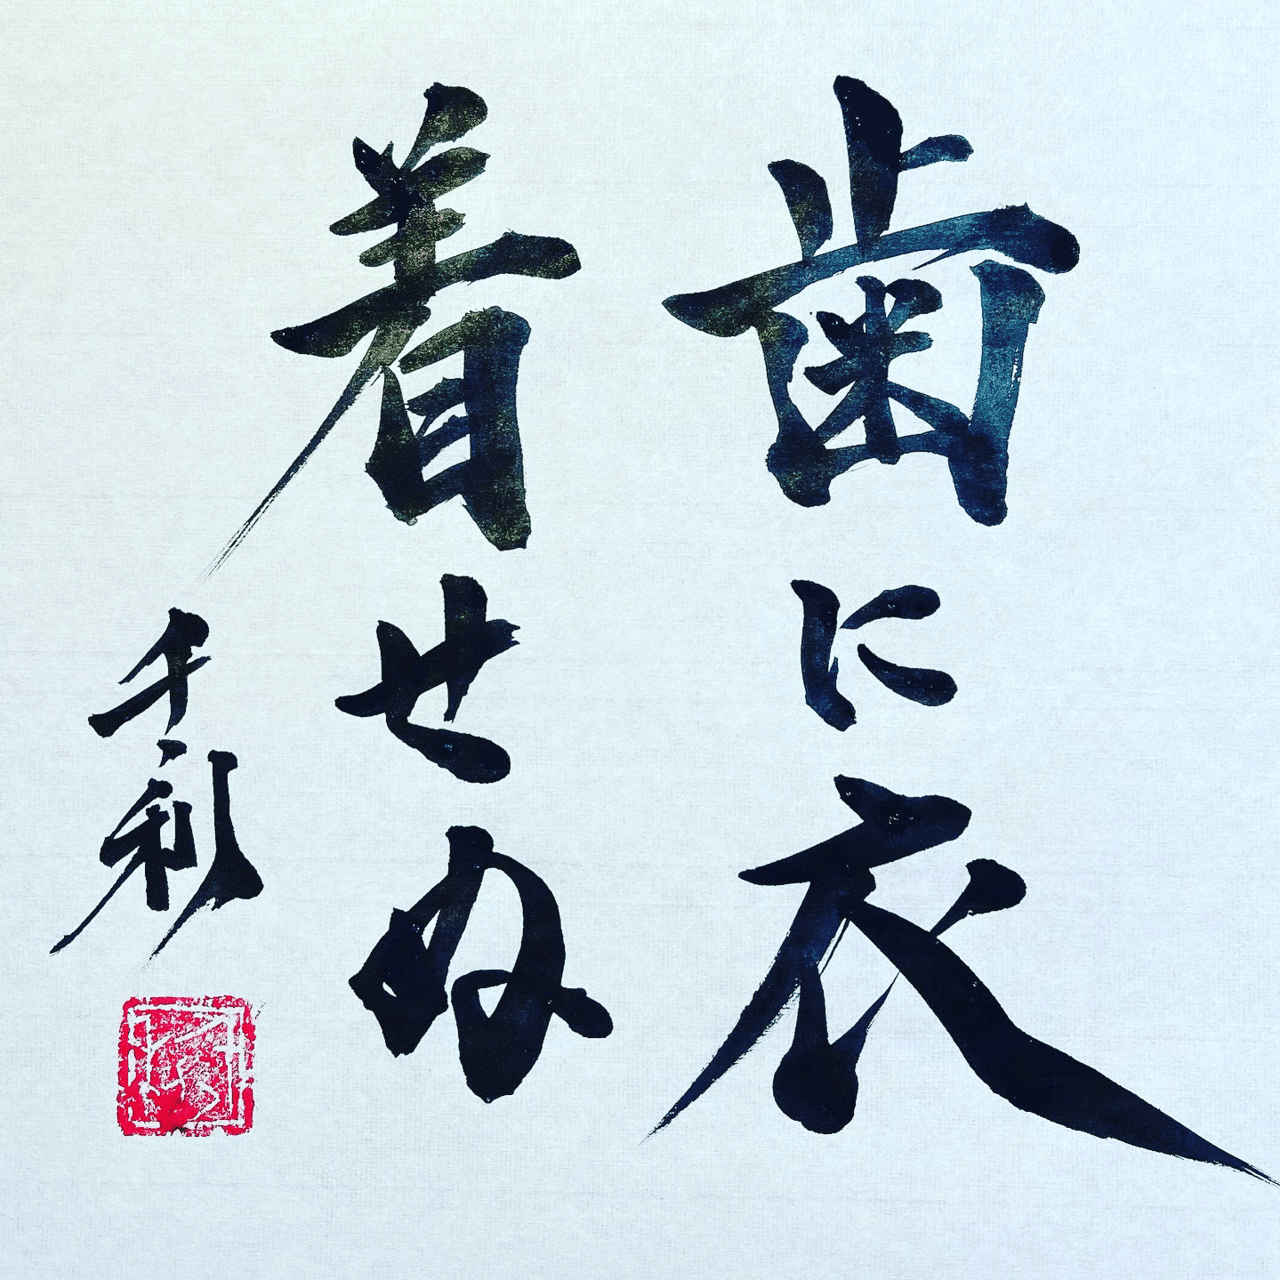 歯に衣
着せぬ
千利